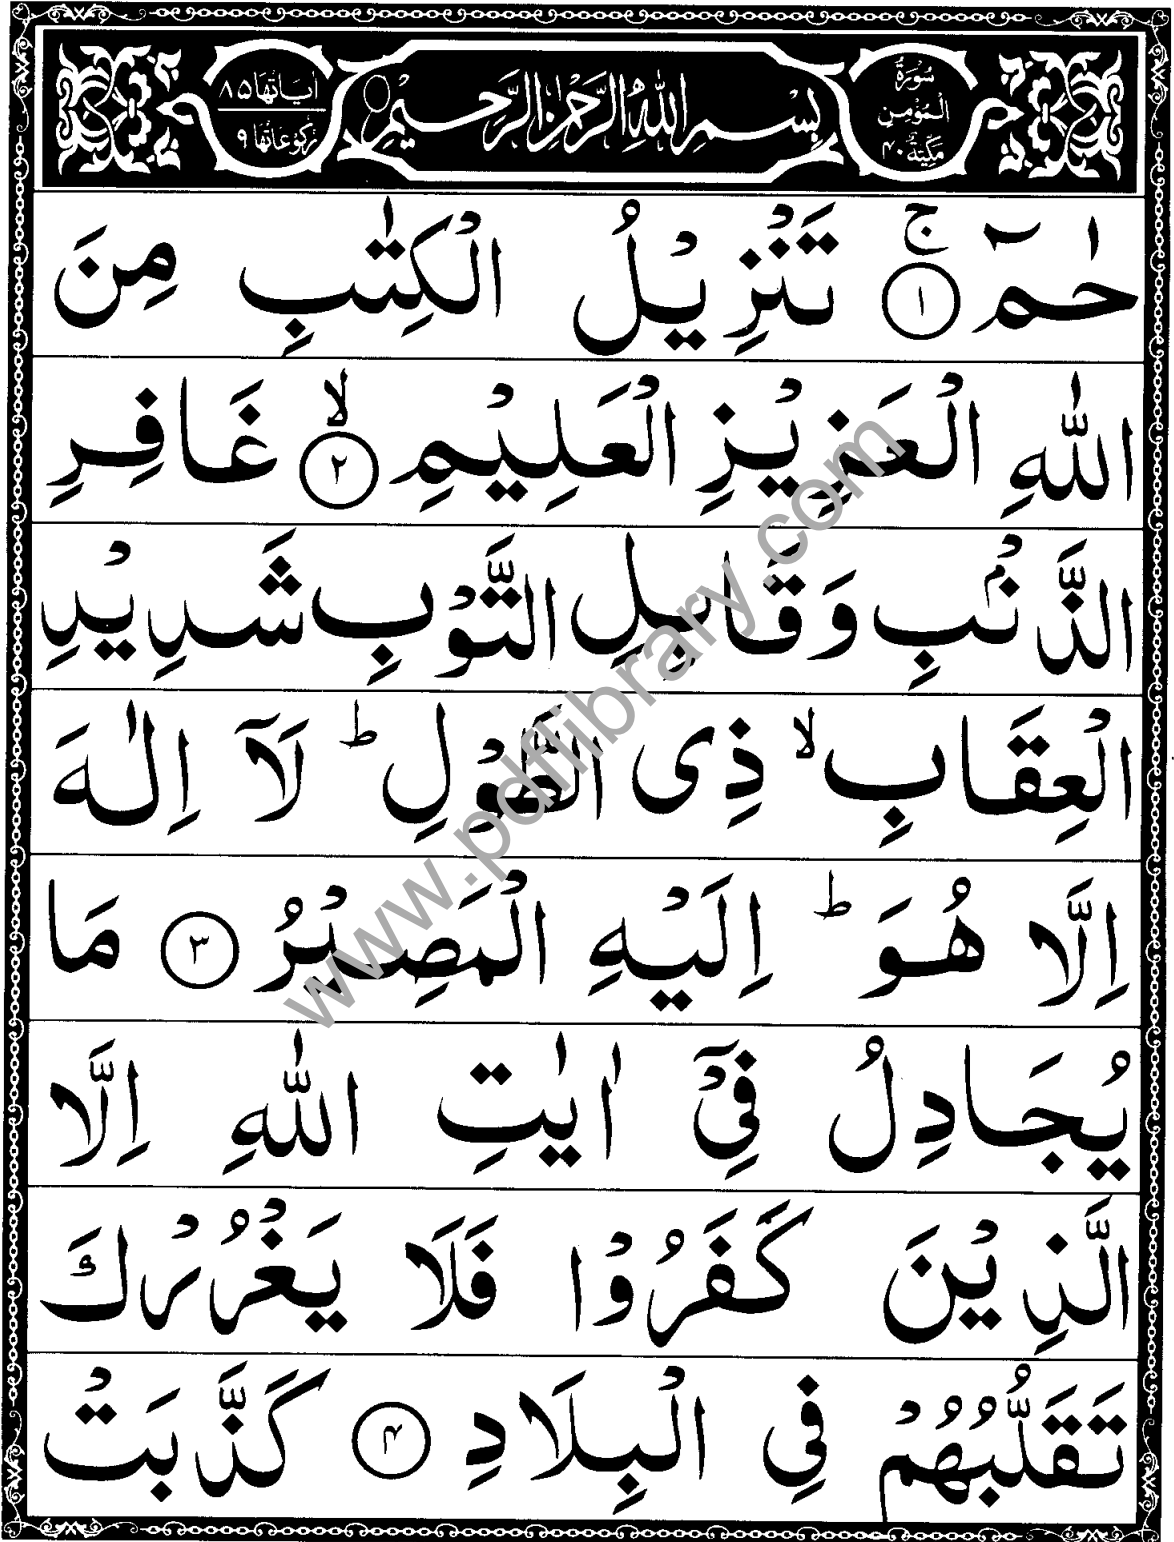 سُوْرَةُ
الْمُؤْمِنِ
مَكِّيَّةٌ ۴۰
بِسْمِ اللّٰهِ الرَّحْمٰنِ الرَّحِيْمِ
اٰيَاتُهَا ۸۵
رُكُوْعَاتُهَا ۹
حٰمٓ ۚ ﴿۱﴾ تَنْزِيْلُ الْكِتٰبِ مِنَ
اللّٰهِ الْعَزِيْزِ الْعَلِيْمِ ۙ ﴿۲﴾ غَافِرِ
الذَّنْۢبِ وَقَابِلِ التَّوْبِ شَدِيْدِ
الْعِقَابِ ۙ ذِى الطَّوْلِ ؕ لَآ اِلٰهَ
اِلَّا هُوَ ؕ اِلَيْهِ الْمَصِيْرُ ﴿۳﴾ مَا
يُجَادِلُ فِىْٓ اٰيٰتِ اللّٰهِ اِلَّا
الَّذِيْنَ كَفَرُوْا فَلَا يَغْرُرْكَ
تَقَلُّبُهُمْ فِى الْبِلَادِ ﴿۴﴾ كَذَّبَتْ
www.pdflibrary.com